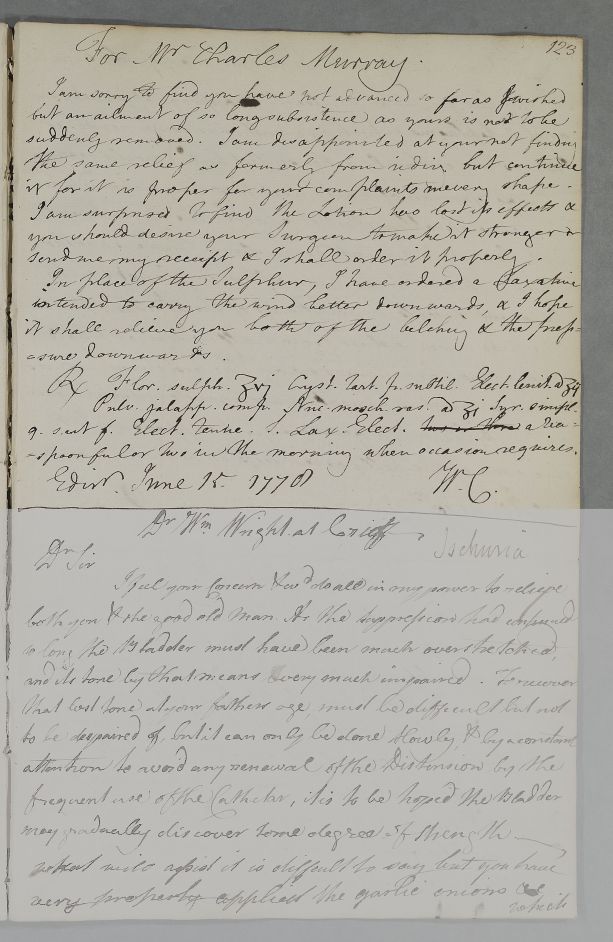 123
For Mr Charles Murray.
I am sorry to find you have not advanced so far as I wished
but an ailment of so long subsistence as yours is not to be
suddenly removed. I am disappointed at your not finding
the same relief as formerly from but continue
it for it is proper for your complaints in every shape.
I am surprised to find the Lotion has lost its effects &
you should desire your Surgeon to make it stronger or
send me my receipt & I shall order it properly.
In place of the Sulphur, I have ordered a Laxative
intended to carry the wind better downwards, & I hope
it shall relieve you both of the belching & the press-
=sure downwards.
℞ Flor. sulph. ʒvj Cryst. tart. pr. subtil. Elect. lenit. a
Pulv. jalapp. comp. Nuc. mosch. ras. a ʒj Syr. simpl.
q. s. ut f. Elect. tenue. S. Lax. Elect. two or three a tea-
=spoonful or two in the morning when occasion requires.
Edinr. June 15. 1778 W.C.
Dr Wm Wright at Crieff. Ischuria
Dr Sir
I feel your Concern & wd do all in my power to relieve
both you & the good old Man. As the suppression had continued
so long the Bladder must have been much overstretched,
and its tone by that means very much impaired. To recover
that lost tone at your fathers age, must be difficult but not
to be despaired of, but it can only be done slowly, & by a constant
attention to avoid any renewal of the Distension by the
frequent use of the Catheter, it is to be hoped the Bladder
may gradually discover some degree of strength
what will assist it is difficult to say but you have
very properly applied the garlic onions &c
which